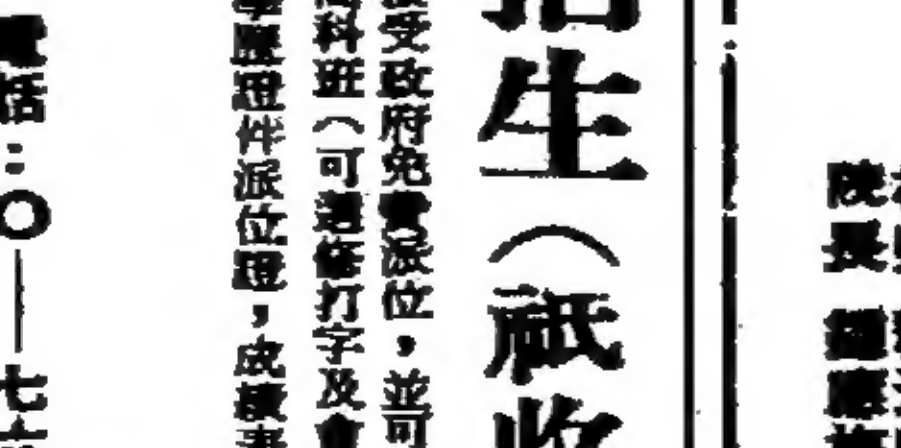 院長
招生（祇收
受政府免費派位，並可
科班（可選修打字及會
學歷證件派位證，成績表
電話：〇—七六